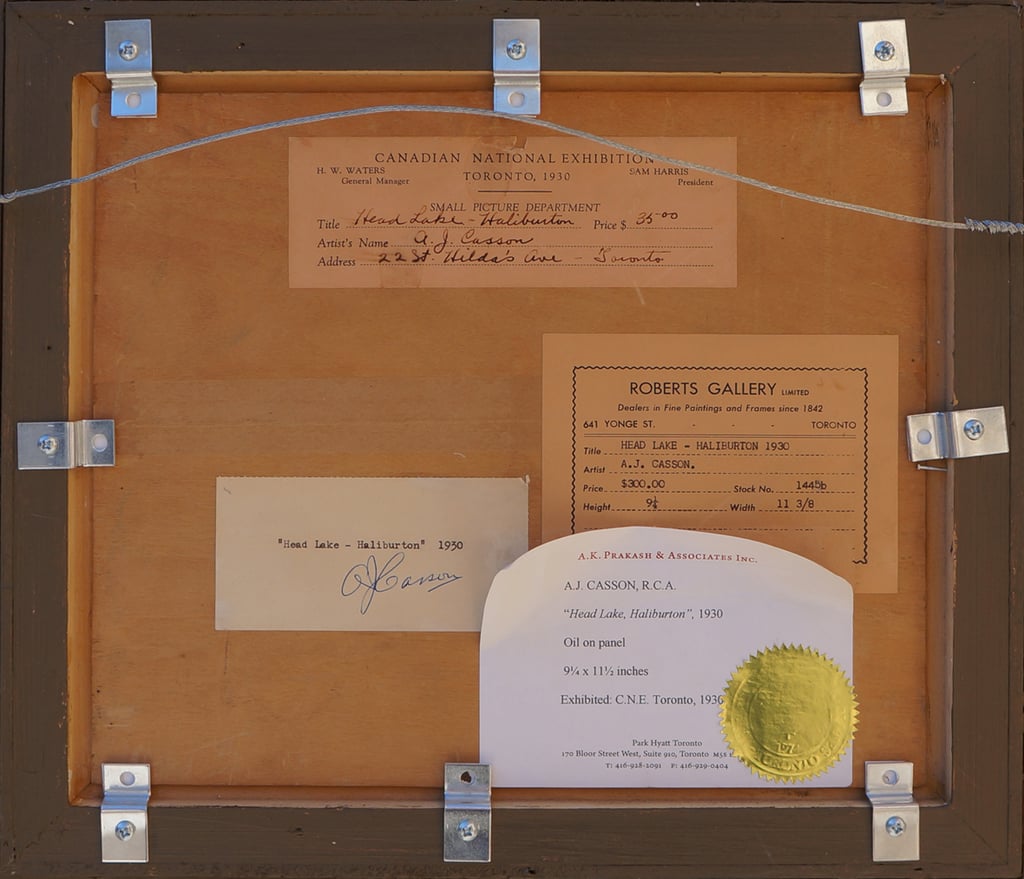 CANADIAN NATIONAL EXHIBITION
H. W. WATERS
General Manager
TORONTO, 1930
SAM HARRIS
President
SMALL PICTURE DEPARTMENT
Title Head Lake - Haliburton Price $ 35.00
Artist's Name A. J. Casson
Address 22 St. Hilda's Ave - Toronto
ROBERTS GALLERY LIMITED
Dealers in Fine Paintings and Frames since 1842
641 YONGE ST. - - - TORONTO
Title HEAD LAKE - HALIBURTON 1930
Artist A.J. CASSON.
Price $300.00 Stock No. 1445b
Height 9¼ Width 11 3/8
"Head Lake - Haliburton" 1930
AJCasson
A.K. PRAKASH & ASSOCIATES INC.
A.J. CASSON, R.C.A.
“Head Lake, Haliburton”, 1930
Oil on panel
9¼ x 11½ inches
Exhibited: C.N.E. Toronto, 1930
Park Hyatt Toronto
170 Bloor Street West, Suite 910, Toronto M5S
T: 416-928-2091 F: 416-929-0404
TORONTO